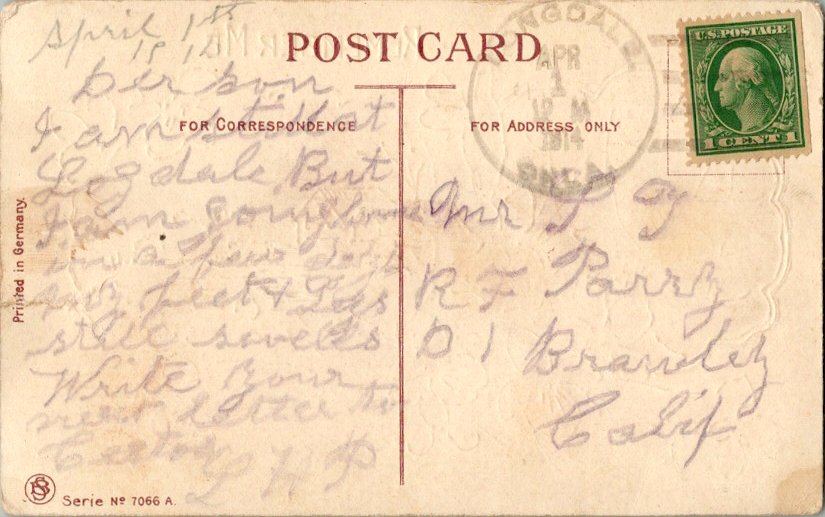 April 1st
1914
POST CARD
FOR CORRESPONDENCE
FOR ADDRESS ONLY
Printed in Germany.
Der son
I am still at
Logdale But
I am Going home
in a few days
my feet & Legs
still swells
Write your
next letter to
L H P
LONGDALE,
APR
1
M
1914
OKLA.
U.S. POSTAGE
1 CENT 1
Mr
R F Parry
D 1 Brawley
Calif
BS
Serie No 7066 A.